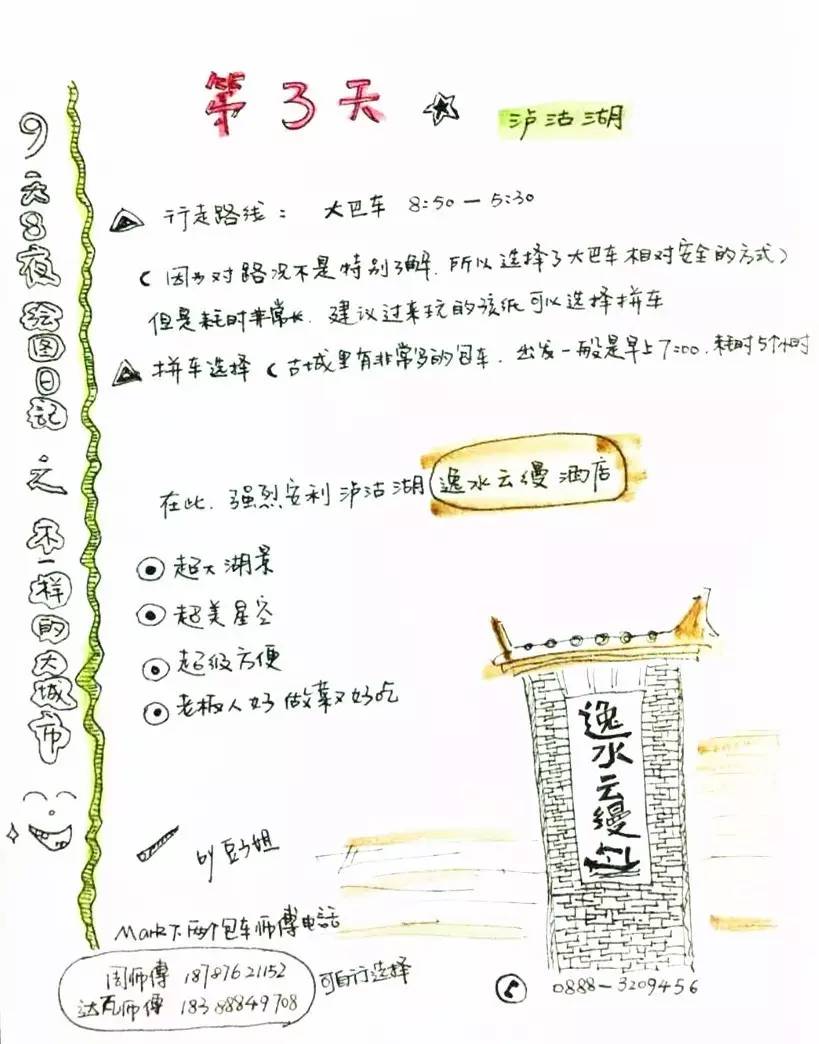 第3天
泸沽湖
9天8夜绘图日记之不一样的大城市
行走路线： 大巴车 8:50 — 5:30
（因为对路况不是特别了解.所以选择了大巴车相对安全的方式）
但是耗时非常长.建议过来玩的孩纸可以选择拼车
拼车选择（古城里有非常多的包车.出发一般是早上7:00.耗时5个小时
在此.强烈安利泸沽湖逸水云缦酒店
超大湖景
超美星空
超级方便
老板人好 做菜又好吃
逸水云缦
by 豆子姐
Mark下.两个包车师傅电話
周师傅 18787621152
达瓦师傅 18388849708
可自行选择
0888-3209456